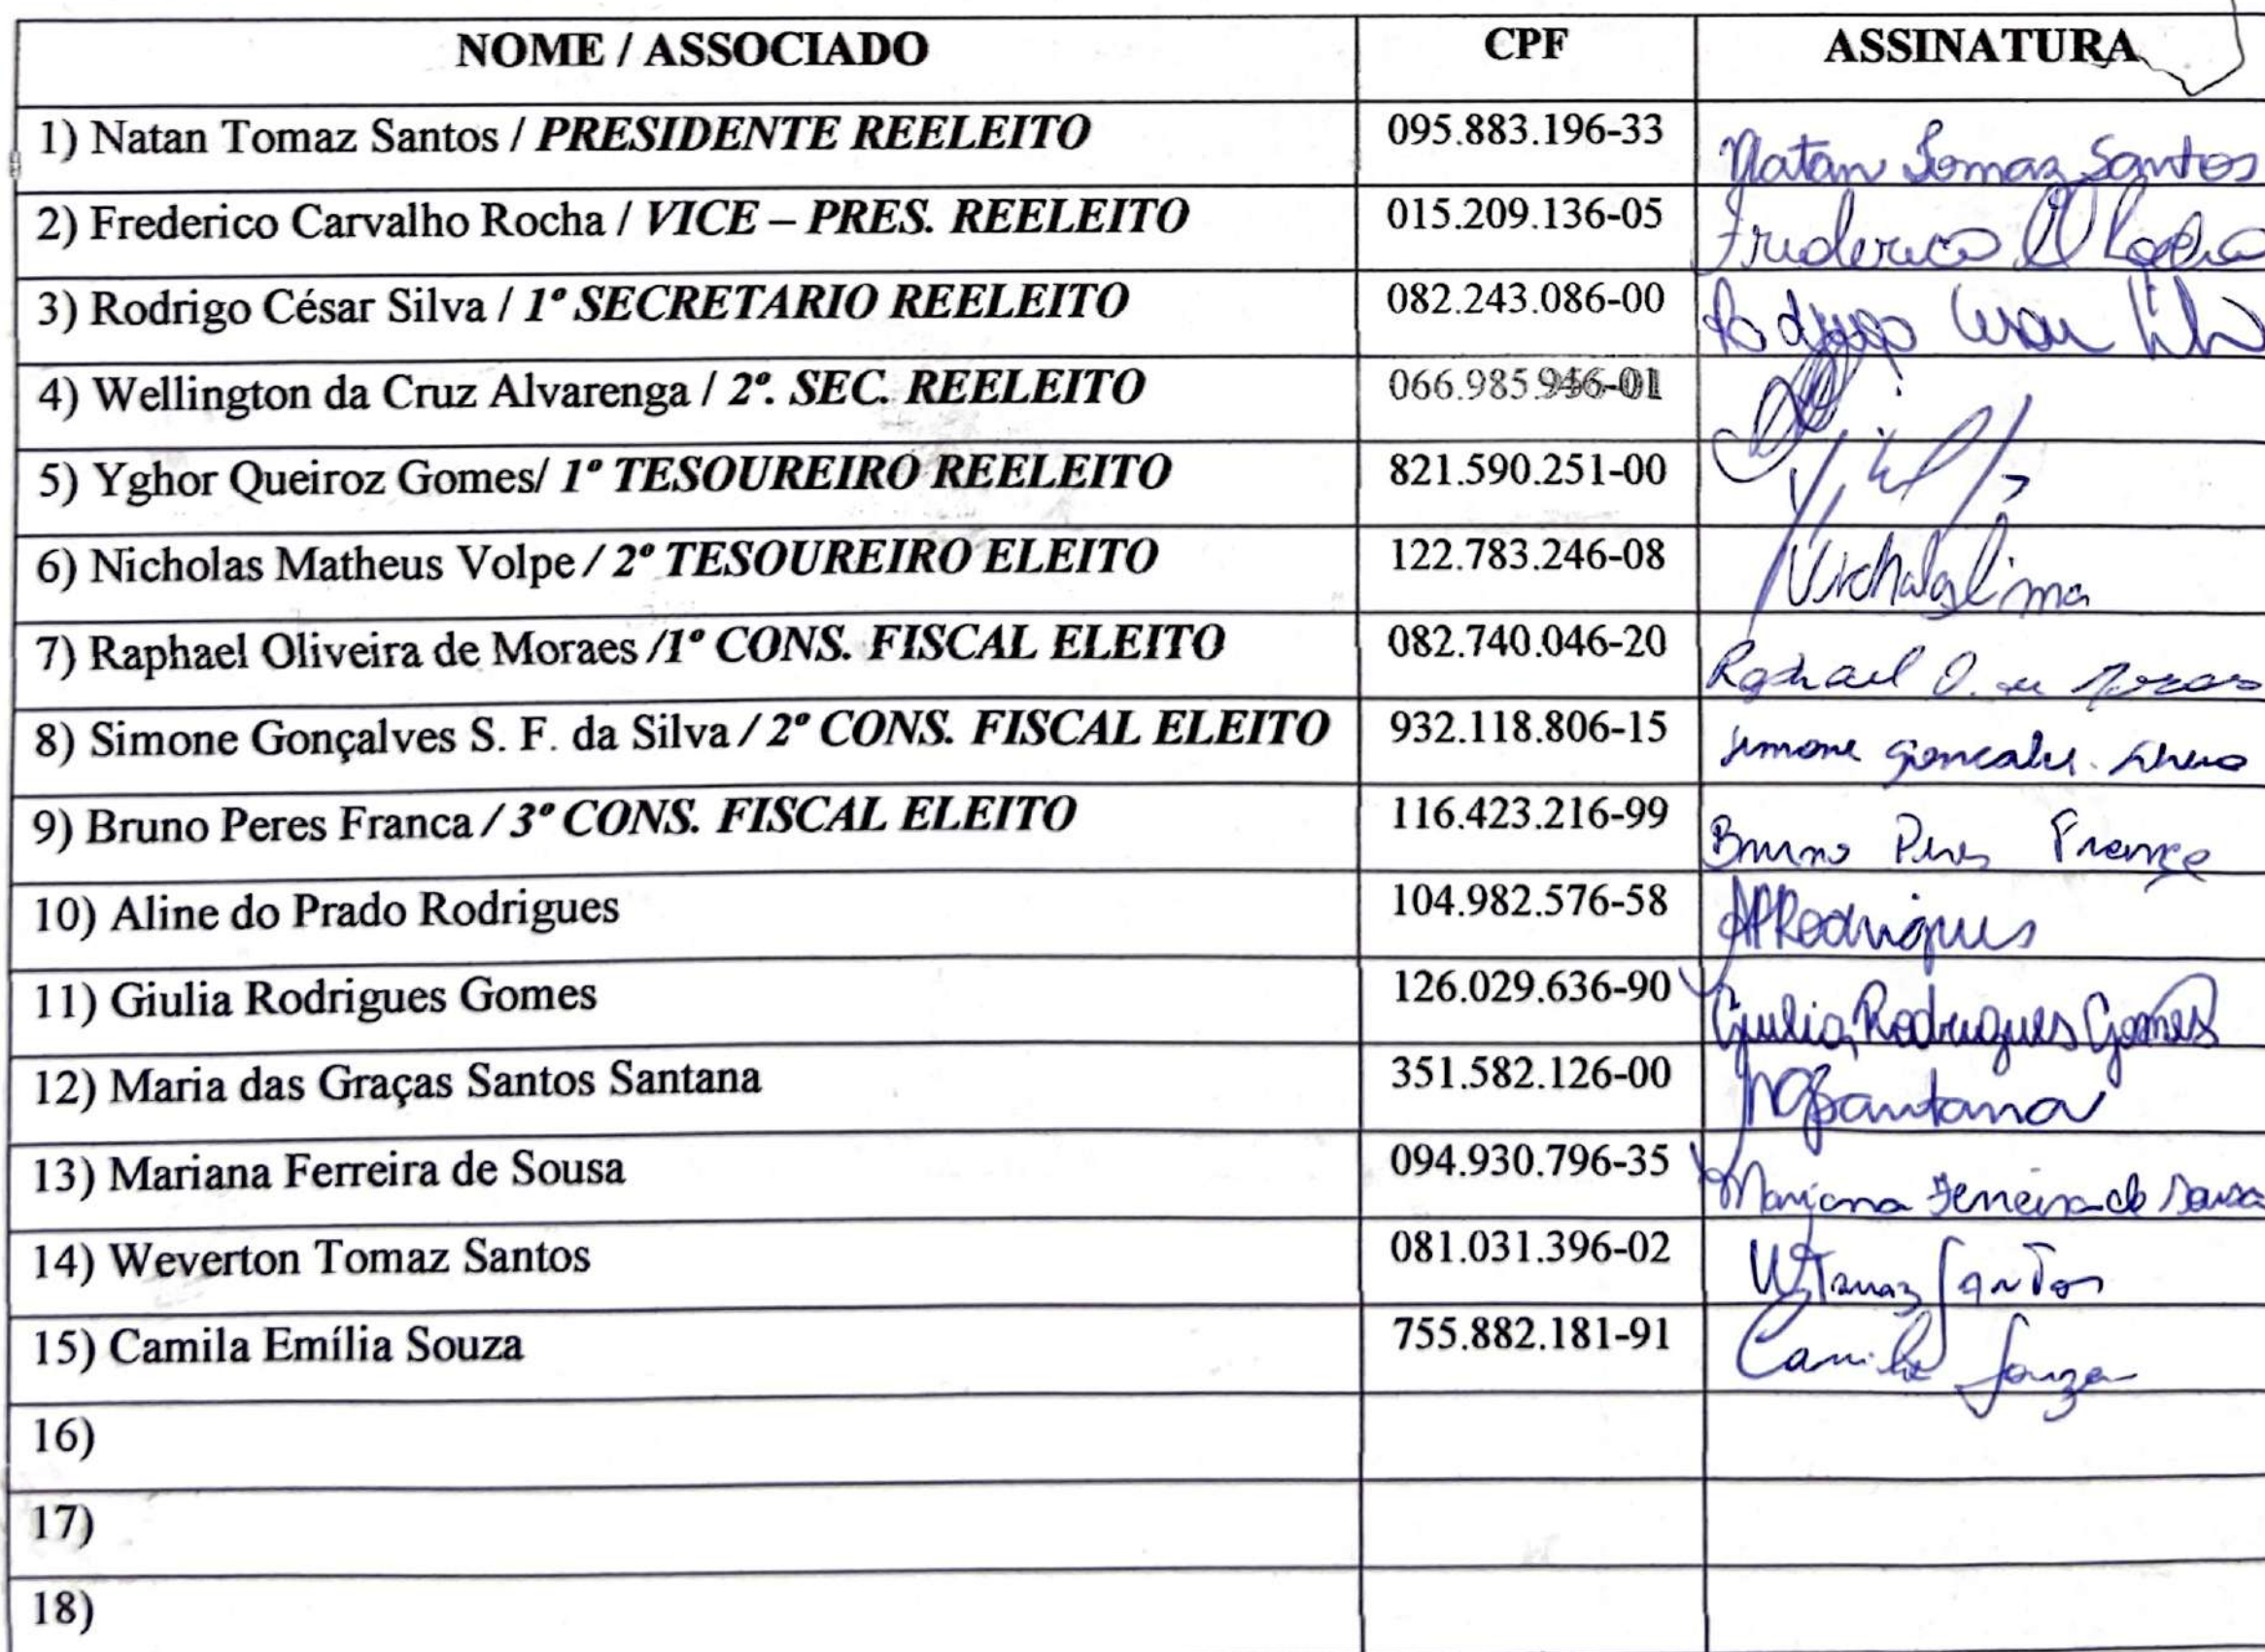 NOME / ASSOCIADO CPF ASSINATURA
1) Natan Tomaz Santos / PRESIDENTE REELEITO 095.883.196-33 Natan Tomaz Santos
2) Frederico Carvalho Rocha / VICE – PRES. REELEITO 015.209.136-05 Frederico C Rocha
3) Rodrigo César Silva / 1º SECRETARIO REELEITO 082.243.086-00 Rodrigo Cesar Silva
4) Wellington da Cruz Alvarenga / 2º. SEC. REELEITO
5) Yghor Queiroz Gomes/ 1º TESOUREIRO REELEITO 821.590.251-00
6) Nicholas Matheus Volpe / 2º TESOUREIRO ELEITO 122.783.246-08
7) Raphael Oliveira de Moraes /1º CONS. FISCAL ELEITO 082.740.046-20 Raphael O. de Moraes
8) Simone Gonçalves S. F. da Silva / 2º CONS. FISCAL ELEITO 932.118.806-15 Simone
9) Bruno Peres Franca / 3º CONS. FISCAL ELEITO 116.423.216-99 Bruno Peres França
10) Aline do Prado Rodrigues 104.982.576-58 APRodrigues
11) Giulia Rodrigues Gomes 126.029.636-90 Giulia Rodrigues Gomes
12) Maria das Graças Santos Santana 351.582.126-00 MGSantana
13) Mariana Ferreira de Sousa 094.930.796-35 Mariana Ferreira de Sousa
14) Weverton Tomaz Santos 081.031.396-02 WTomaz Santos
15) Camila Emília Souza 755.882.181-91 Camila Souza
16)
17)
18)